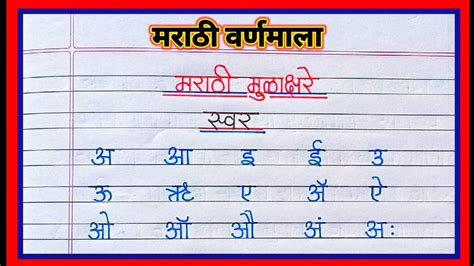 मराठी वर्णमाला
मराठी मुळाक्षरे
स्वर
अ आ इ ई उ
ऊ ऋ ए ॲ ऐ
ओ ऑ औ अं अः